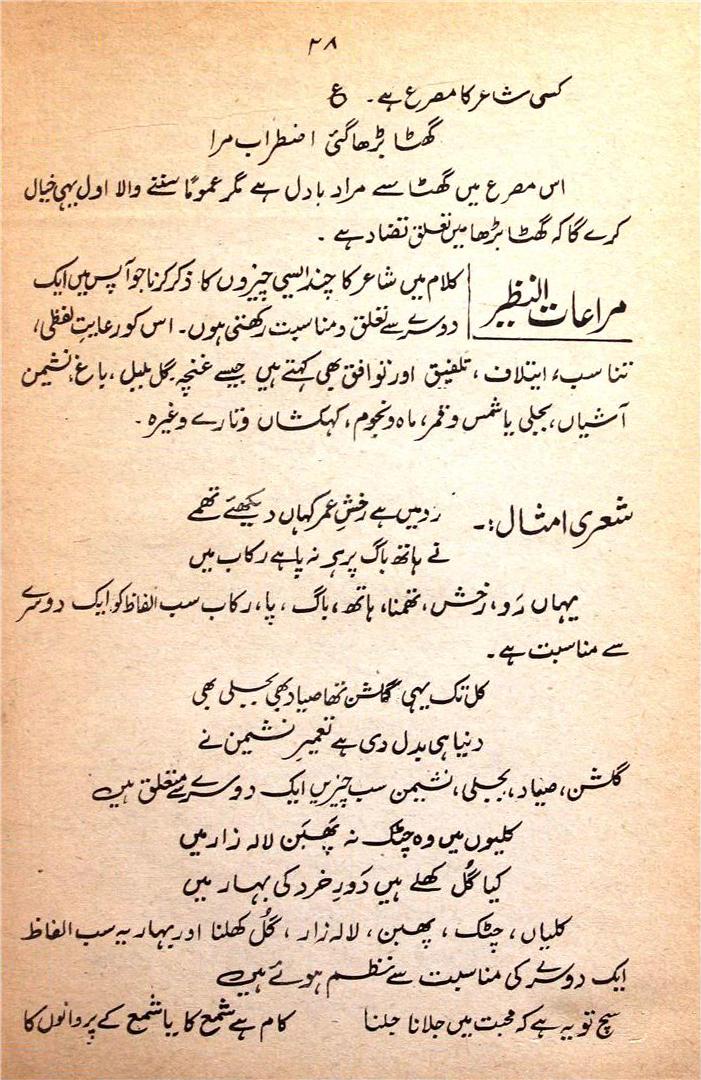 ۳۸
کسی شاعر کا مصرع ہے۔ ع
گھٹا بڑھا گئی اضطراب مرا
اس مصرع میں گھٹا سے مراد بادل ہے مگر عموماً سننے والا اول یہی خیال
کرے گا کہ گھٹا بڑھا میں تعلق تضاد ہے ۔
مراعات النظیر
کلام میں شاعر کا چند ایسی چیزوں کا ذکر کرنا جو آپس میں ایک
دوسرے سے تعلق و مناسبت رکھتی ہوں۔ اس کو رعایتِ لفظی،
تناسب، ایتلاف، تلفیق اور توافق بھی کہتے ہیں جیسے غنچہ گل بلبل، باغ، نشیمن
آشیاں، بجلی یا شمس و قمر، ماہ و نجوم، کہکشاں و تارے وغیرہ۔
شعری امثال:۔ رو میں ہے رخشِ عمر کہاں دیکھئے تھمے
نے ہاتھ باگ پر ہے نہ پا ہے رکاب میں
یہاں رَو، رخش، تھمنا، ہاتھ، باگ، پا، رکاب سب الفاظ کو ایک دوسرے
سے مناسبت ہے۔
کل تک یہی گلشن تھا صیاد بھی بجلی بھی
دنیا ہی بدل دی ہے تعمیرِ نشیمن نے
گلشن، صیاد، بجلی، نشیمن سب چیزیں ایک دوسرے سے متعلق ہیں
کلیوں میں وہ چٹک نہ پھبَن لالہ زار میں
کیا گُل کھلے ہیں دَورِ خرد کی بہار میں
کلیاں، چٹک، پھبن، لالہ زار، گُل کھلنا اور بہار یہ سب الفاظ
ایک دوسرے کی مناسبت سے نظم ہوئے ہیں
سچ تو یہ ہے کہ محبت میں جلانا جلنا کام ہے شمع کا یا شمع کے پروانوں کا